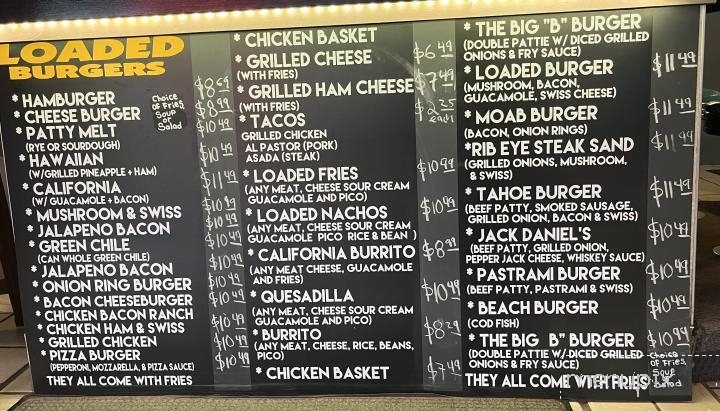 LOADED
BURGERS
* HAMBURGER
* CHEESE BURGER
* PATTY MELT
(RYE OR SOURDOUGH)
* HAWAIIAN
(W/GRILLED PINEAPPLE + HAM)
* CALIFORNIA
(W/ GUACAMOLE + BACON)
* MUSHROOM & SWISS
* JALAPENO BACON
* GREEN CHILE
(CAN WHOLE GREEN CHILE)
* JALAPENO BACON
* ONION RING BURGER
* BACON CHEESEBURGER
* CHICKEN BACON RANCH
* CHICKEN HAM & SWISS
* GRILLED CHICKEN
* PIZZA BURGER
(PEPPERONI, MOZZARELLA, & PIZZA SAUCE)
THEY ALL COME WITH FRIES
Choice
of Fries,
Soup
or
Salad
$10 49
$10 49
$11 49
$10 49
$10 49
$10 49
$10 49
$10 49
* CHICKEN BASKET
* GRILLED CHEESE
(WITH FRIES)
* GRILLED HAM CHEESE
(WITH FRIES)
* TACOS
GRILLED CHICKEN
AL PASTOR (PORK)
ASADA (STEAK)
* LOADED FRIES
(ANY MEAT, CHEESE SOUR CREAM
GUACAMOLE AND PICO)
* LOADED NACHOS
(ANY MEAT, CHEESE SOUR CREAM
GUACAMOLE PICO RICE & BEAN )
* CALIFORNIA BURRITO
(ANY MEAT CHEESE, GUACAMOLE
AND FRIES)
* QUESADILLA
(ANY MEAT, CHEESE SOUR CREAM
GUACAMOLE AND PICO)
* BURRITO
(ANY MEAT, CHEESE, RICE, BEANS,
PICO)
* CHICKEN BASKET
$6 49
$7 49
each
$10 99
$10 99
$8 99
$10 49
$7 49
* THE BIG "B" BURGER
(DOUBLE PATTIE W/ DICED GRILLED
ONIONS & FRY SAUCE)
* LOADED BURGER
(MUSHROOM, BACON,
GUACAMOLE, SWISS CHEESE)
* MOAB BURGER
(BACON, ONION RINGS)
*RIB EYE STEAK SAND
(GRILLED ONIONS, MUSHROOM,
& SWISS)
* TAHOE BURGER
(BEEF PATTY, SMOKED SAUSAGE,
GRILLED ONION, BACON & SWISS)
* JACK DANIEL'S
(BEEF PATTY, GRILLED ONION,
PEPPER JACK CHEESE, WHISKEY SAUCE)
* PASTRAMI BURGER
(BEEF PATTY, PASTRAMI & SWISS)
* BEACH BURGER
(COD FISH)
* THE BIG B" BURGER
(DOUBLE PATTIE W/ DICED GRILLED
ONIONS & FRY SAUCE)
THEY ALL COME WITH FRIES
$11 49
$11 49
$11 49
$11 49
$10 49
$10 49
$10 49
$10 99
Choice
of Fries,
Soup
Salad